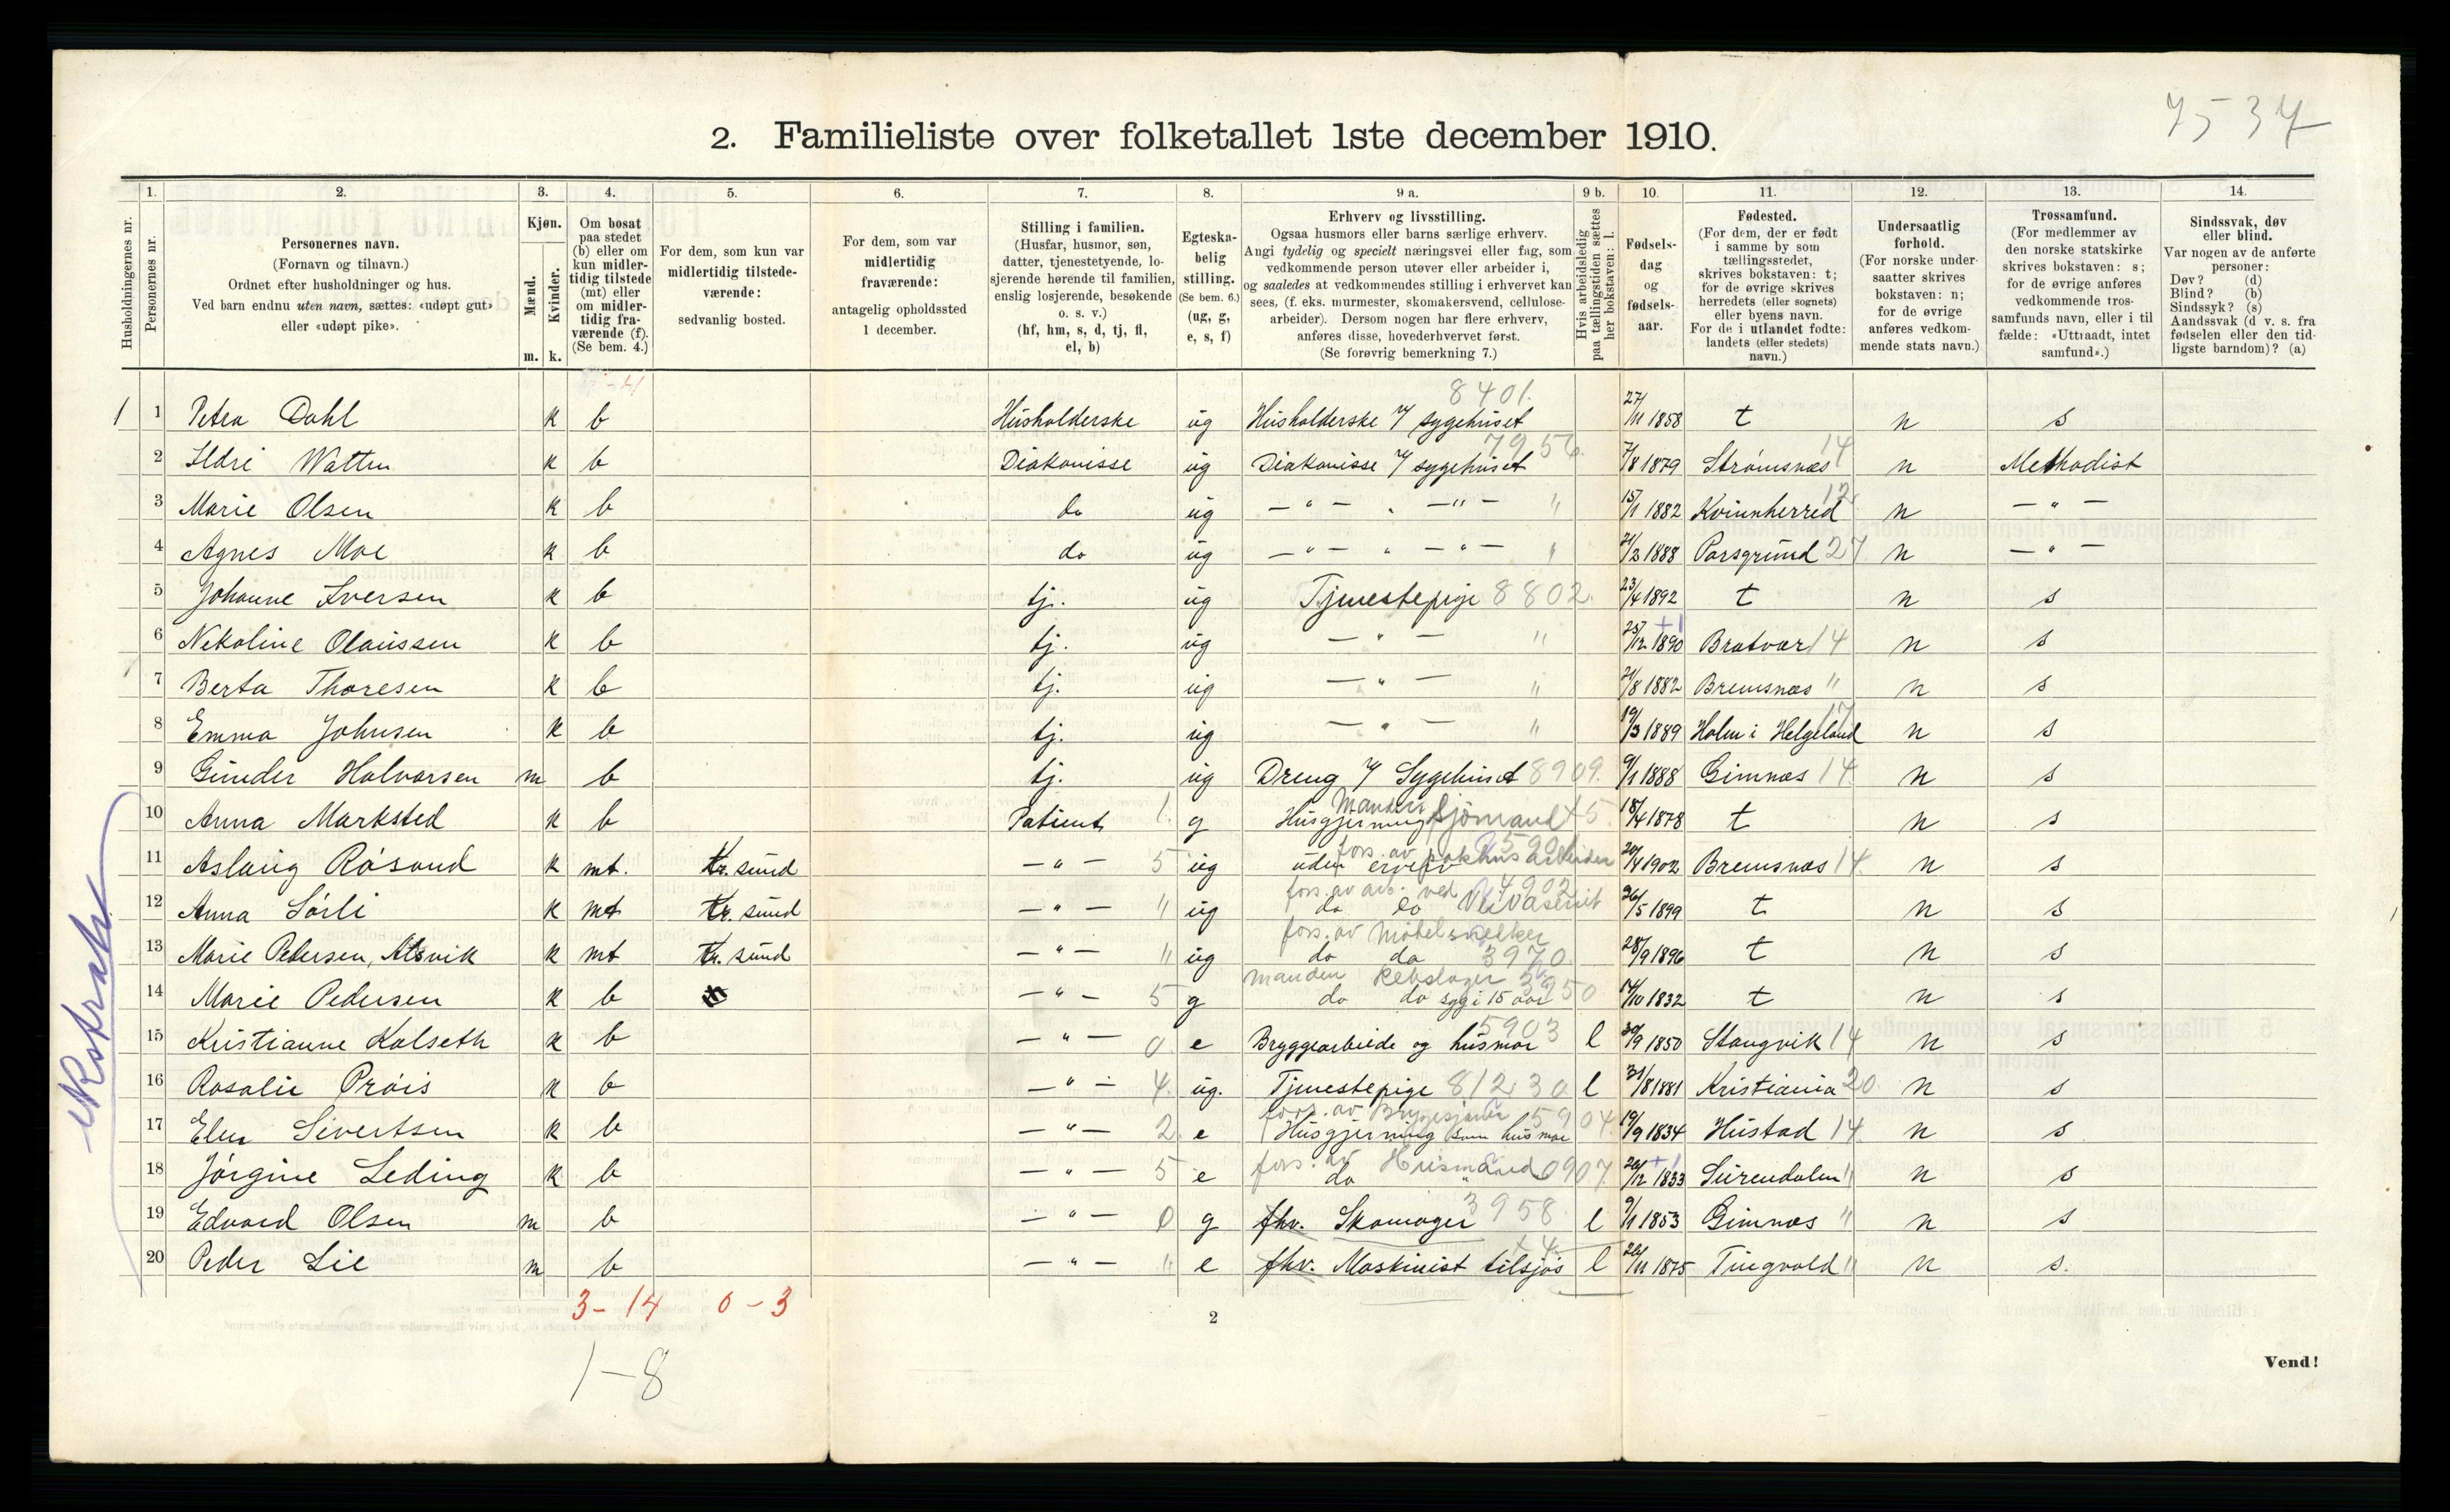 7537
2. Familieliste over folketallet 1ste december 1910.
Husholdningernes nr.
1. Personernes nr.
2. Personernes navn. (Fornavn og tilnavn.) Ordnet efter husholdninger og hus. Ved barn endnu uten navn, sættes: «udøpt gut» eller «udøpt pike».
3. Kjøn. Mænd. m. Kvinder. k.
4. Om bosat paa stedet (b) eller om kun midlertidig tilstede (mt) eller om midlertidig fraværende (f). (Se bem. 4.)
5. For dem, som kun var midlertidig tilstedeværende: sedvanlig bosted.
6. For dem, som var midlertidig fraværende: antagelig opholdssted 1 december.
7. Stilling i familien. (Husfar, husmor, søn, datter, tjenestetyende, losjerende hørende til familien, enslig losjerende, besøkende o. s. v.) (hf, hm, s, d, tj, fl, el, b)
8. Egteskabelig stilling. (Se bem. 6.) (ug, g, e, s, f)
9 a. Erhverv og livsstilling. Ogsaa husmors eller barns særlige erhverv. Angi tydelig og specielt næringsvei eller fag, som vedkommende person utøver eller arbeider i, og saaledes at vedkommendes stilling i erhvervet kan sees, (f. eks. murmester, skomakersvend, cellulosearbeider). Dersom nogen har flere erhverv, anføres disse, hovederhvervet først. (Se forøvrig bemerkning 7.)
9 b. Hvis arbeidsledig paa tællingstiden sættes her bokstaven: l.
10. Fødselsdag og fødselsaar.
11. Fødested. (For dem, der er født i samme by som tællingsstedet, skrives bokstaven: t; for de øvrige skrives herredets (eller sognets) eller byens navn. For de i utlandet fødte: landets (eller stedets) navn.)
12. Undersaatlig forhold. (For norske undersaatter skrives bokstaven: n; for de øvrige anføres vedkommende stats navn.)
13. Trossamfund. (For medlemmer av den norske statskirke skrives bokstaven: s; for de øvrige anføres vedkommende trossamfunds navn, eller i tilfælde: «Uttraadt, intet samfund».)
14. Sindssvak, døv eller blind. Var nogen av de anførte personer: Døv? (d) Blind? (b) Sindssyk? (s) Aandssvak (d v. s. fra fødselen eller den tidligste barndom)? (a)
8401.
1 1 Petra Dahl k b Husholderske ug Husholderske v/ sygehuset 27/11 1858 t n s
2 Ildri Wattn k b Diakonisse ug Diakonisse v/ sygehuset 7956 7/8 1879 Strömsnæs 14 n Methodist
3 Marie Olsen k b do ug — " — " — " — " 15/1 1882 Kvinnherred 12 n — " —
4 Agnes Moe k b do ug — " — " — " — " 21/2 1888 Porsgrund 27. n — " —
5 Johanne Iversen k b tj. ug Tjenestepige 8802. 23/4 1892 t n s
6 Nekoline Olaussen k b tj. ug — " — " 25/12 1890 +1 Bratvær 14 n s
7 Berta Thoresen k b tj. ug — " — " 21/8 1882 Bremsnæs " n s
8 Emma Johnsen k b tj. ug — " — " 19/3 1889 Holm i Helgeland 17 n s
9 Gunder Halvorsen m b tj. ug Dreng v/ Sygehuset 8909. 9/1 1888 Gimnæs 14 n s
10 Anna Marksted k b Patient 1. g Husgjerning Mandens Sjömand +5. 18/4 1878 t n s
11 Aslaug Rösand k mt. Kr. sund — " — 5 ug uden erverv fors. av pakhusarbeider 20/4 1902 Bremsnæs 14. n s
12 Anna Sörli k mt Kr. sund — " — " ug do do fors. av arb. ved 26/5 1899 t n s
13 Marie Pedersen, Alsvik k mt Kr. sund — " — " ug do do fors. av Möbelsnekker 3970. 28/9 1896 t n s
14 Marie Pedersen k b — " — 5 g do do syg i 15 aar manden Rebslager 3950 14/10 1832 t n s
15 Kristianne Kalseth k b — " — 0 e Bryggearbeide og husmor 5903 l 30/9 1850 Stangvik 14 n s
16 Rosalie Pröis k b — " — 4. ug. Tjenestepige 812 30 l 31/8 1881 Kristiania 20. n s
17 Elen Sivertsen k b — " — 2. e Husgjerning som husmor 5904. 19/9 1834 Hustad 14. n s
18 Jörgine Leding k b — " — 5 e do " fors. av Husmand 0907 26/12 1833 +1 Surendalen " n s
19 Edvard Olsen m b — " — 0 g fhv. Skomager 3958. l 9/1 1853 Gimnæs " n s
20 Peder Lie m b — " — " e fhv. Maskinist tilsjös +4. l 24/11 1875 Tingvold " n s.
3 - 14 0 - 3
1 - 8
2
Vend!